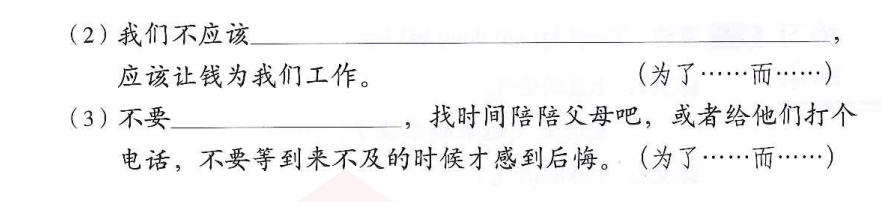 (2) 我们不应该____________________，
应该让钱为我们工作。 （为了……而……）
(3) 不要____________，找时间陪陪父母吧，或者给他们打个
电话，不要等到来不及的时候才感到后悔。（为了……而……）